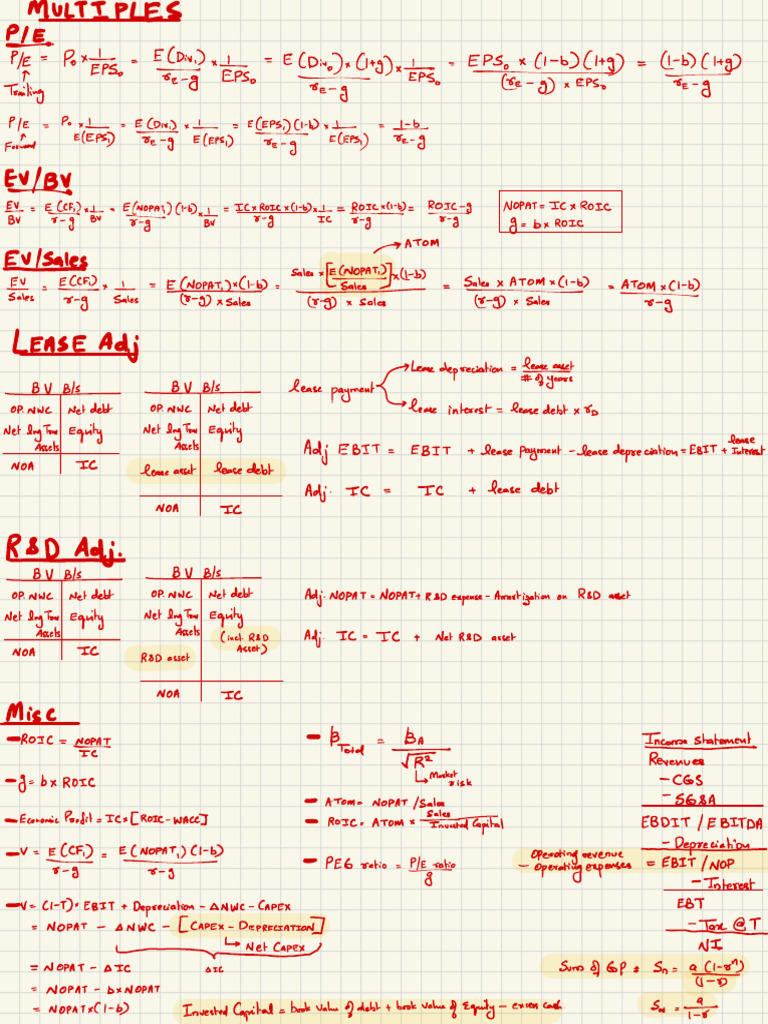 MULTIPLES
P/E
P/E = P₀ × 1/EPS₀ = E(Div₁)/(r_E - g) × 1/EPS₀ = E(Div₀) × (1+g)/(r_E - g) × 1/EPS₀ = EPS₀ × (1-b)(1+g)/((r_E - g) × EPS₀) = (1-b)(1+g)/(r_E - g)
↑
Trailing
P/E = P₀ × 1/E(EPS₁) = E(Div₁)/(r_E - g) × 1/E(EPS₁) = E(EPS₁)(1-b)/(r_E - g) × 1/E(EPS₁) = (1-b)/(r_E - g)
↑
Forward
EV/BV
EV/BV = E(CF₁)/(r-g) × 1/BV = E(NOPAT₁)(1-b)/(r-g) × 1/BV = IC × ROIC × (1-b)/(r-g) × 1/IC = ROIC × (1-b)/(r-g) = (ROIC - g)/(r-g)
NOPAT = IC × ROIC
g = b × ROIC
→ ATOM
EV/Sales
EV/Sales = E(CF₁)/(r-g) × 1/Sales = E(NOPAT₁) × (1-b)/((r-g) × Sales) = Sales × [E(NOPAT₁)/Sales] × (1-b)/((r-g) × Sales) = Sales × ATOM × (1-b)/((r-g) × Sales) = ATOM × (1-b)/(r-g)
LEASE Adj
BV B/s
OP. NWC | Net debt
Net lng Trm Assets | Equity
NOA | IC
BV B/s
OP. NWC | Net debt
Net lng Trm Assets | Equity
lease asset | lease debt
NOA | IC
lease payment
→ Lease depreciation = lease asset/# of years
→ lease interest = lease debt × r_D
Adj EBIT = EBIT + lease payment - lease depreciation = EBIT + lease Interest
Adj. IC = IC + lease debt
R&D Adj.
BV B/s
OP. NWC | Net debt
Net lng Trm Assets | Equity
NOA | IC
BV B/s
OP. NWC | Net debt
Net lng Trm Assets | Equity
(incl. R&D Asset)
R&D asset
NOA | IC
Adj. NOPAT = NOPAT + R&D expense - Amortization on R&D asset
Adj. IC = IC + Net R&D asset
Misc
- ROIC = NOPAT/IC
- g = b × ROIC
- Economic Profit = IC × [ROIC - WACC]
- V = E(CF₁)/(r-g) = E(NOPAT₁)(1-b)/(r-g)
- V = (1-T) * EBIT + Depreciation - ΔNWC - CAPEX
= NOPAT - ΔNWC - [CAPEX - DEPRECIATION]
→ Net CAPEX
ΔIC
= NOPAT - ΔIC
= NOPAT - b × NOPAT
= NOPAT × (1-b)
- β Total = βA/√R²
→ Market risk
- ATOM = NOPAT/Sales
- ROIC = ATOM × Sales/Invested Capital
- PEG ratio = P/E ratio/g
Income Statement
Revenues
- CGS
- SG&A
EBDIT/EBITDA
- Depreciation
Operating revenue
- Operating expenses = EBIT/NOP
- Interest
EBT
- Tax @ T
NI
Sums of GP = Sₙ = a(1-rⁿ)/(1-r)
S∞ = a/(1-r)
Invested Capital = book value of debt + book value of Equity - excess cash